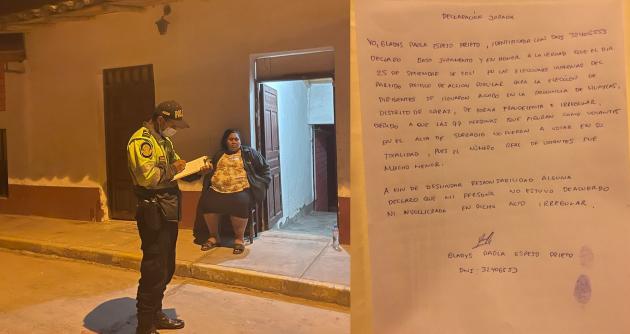 DECLARACIÓN JURADA
YO, GLADYS PAOLA ESPEJO PRIETO, IDENTIFICADA CON DNI 32406553
DECLARO BAJO JURAMENTO Y EN HONOR A LA VERDAD QUE EL DIA
25 DE SEPTIEMBRE DE 2021 EN LAS ELECCIONES INTERNAS DEL
PARTIDO POLITICO DE ACCION POPULAR PARA LA ELECCIÓN DE
DIRIGENTES SE LLEVARON ACABO EN LA PROVINCIA DE HUAYLAS,
DISTRITO DE CARAZ, DE FORMA FRAUDULENTA E IRREGULAR,
DEBIDO A QUE LAS 97 PERSONAS QUE FIGURAN COMO VOTANTES
EN EL ACTA DE SUFRAGIO NO FUERON A VOTAR EN SU
TOTALIDAD, PUES EL NÚMERO REAL DE VOTANTES FUE
MUCHO MENOR.
A FIN DE DESLINDAR RESPONSABILIDAD ALGUNA
DECLARO QUE MI PERSONA NO ESTUVO DEACUERDO
NI INVOLUCRADA EN DICHO ACTO IRREGULAR.
GLADYS PAOLA ESPEJO PRIETO
DNI: 32406553